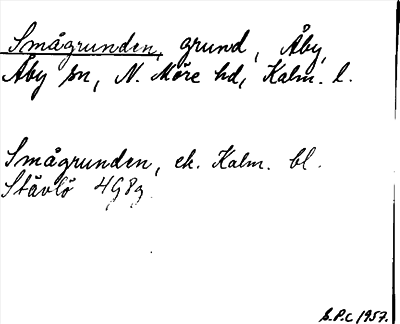 Smågrunden, grund, Åby,
Åby sn, N. Möre hd, Kalm. l.
Smågrunden, ek. Kalm. bl.
Stävlö 4G8g
S.P.C 1957.